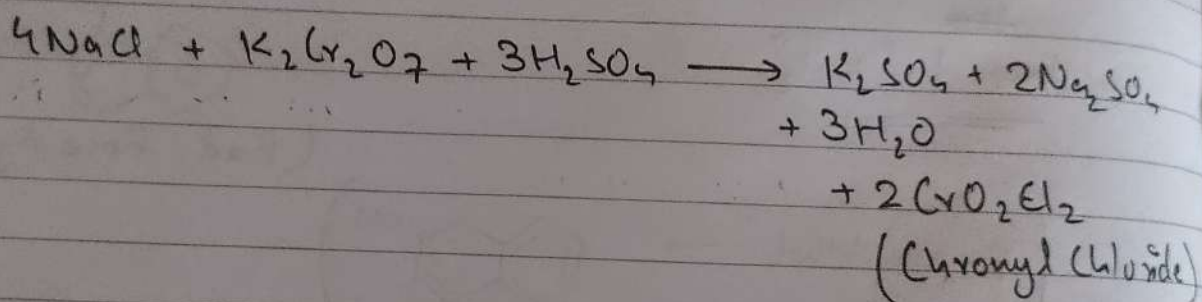 4NaCl + K₂Cr₂O₇ + 3H₂SO₄ ⟶ K₂SO₄ + 2Na₂SO₄
+ 3H₂O
+ 2CrO₂Cl₂
(Chromyl Chloride)